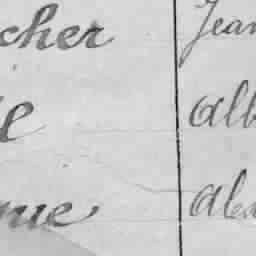 cher Jean
el Alb
nue Alex